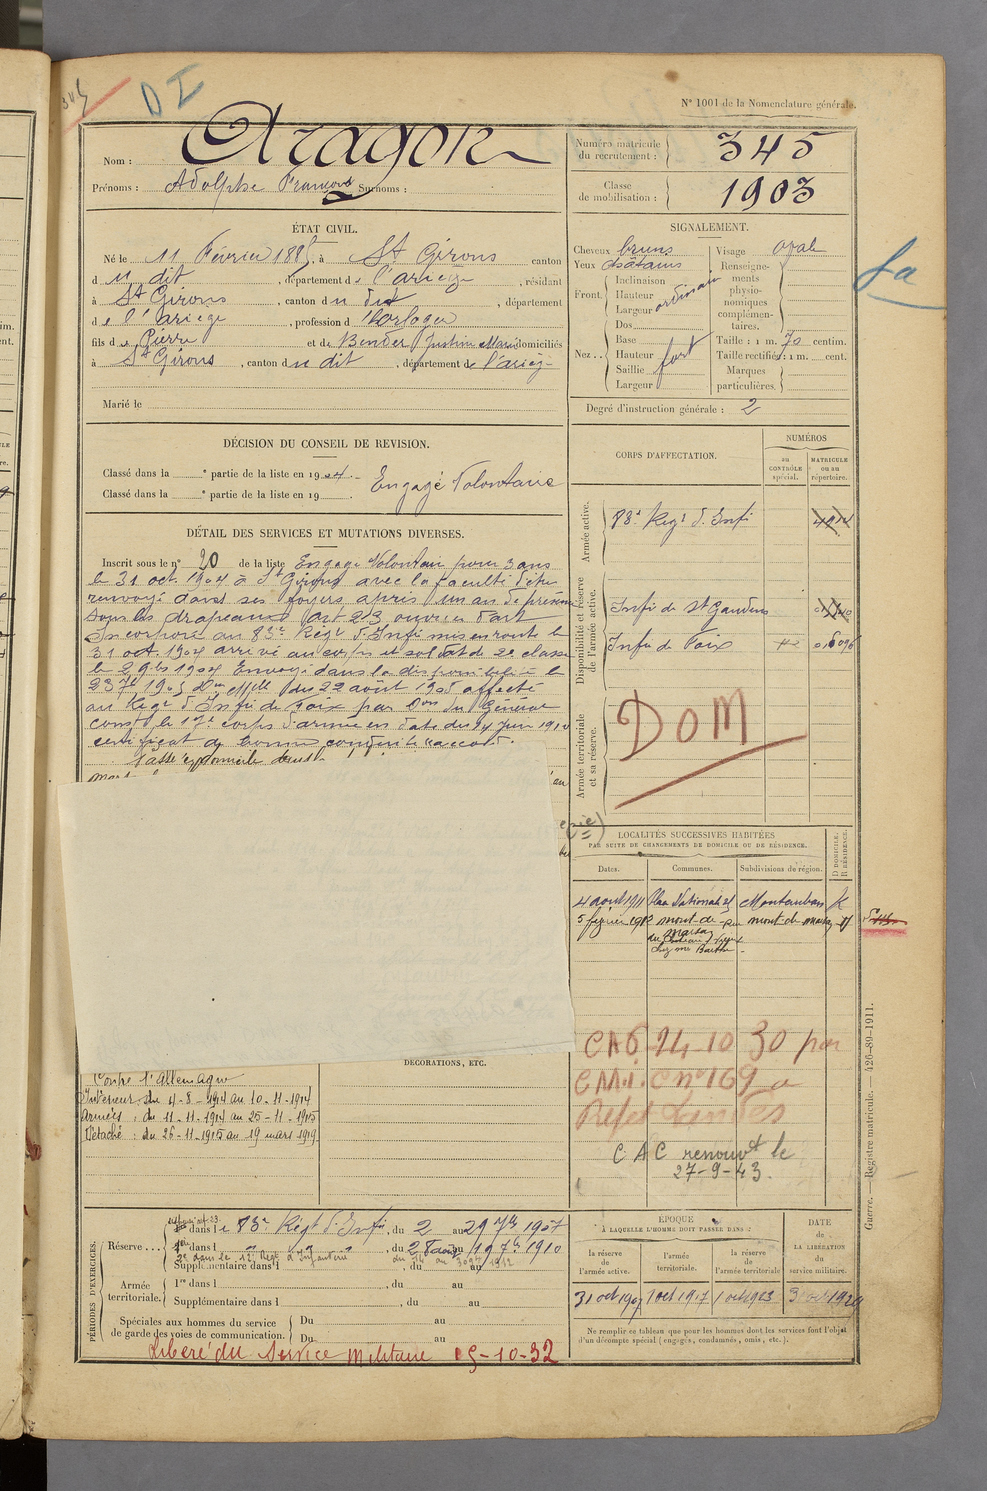 345
D I
N° 1001 de la Nomenclature générale.
Nom : Aragon
Prénoms : Adolphe François Surnoms :
Numéro matricule du recrutement : 345
Classe de mobilisation : 1903
ÉTAT CIVIL.
Né le 11 Février 1885, à St Girons canton
d u dit, département de l'ariège, résidant
à St Girons, canton du dit, département
de l'Ariège, profession d'horloger
fils de Pierre et de Bender Justine Marie domiciliés
à St Girons, canton du dit, département de l'arièg-
Marié le
SIGNALEMENT.
Cheveux bruns
Yeux chatains
Front. Inclinaison
Hauteur ordinaire
Largeur
Dos
Nez... Base
Hauteur fort
Saillie
Largeur
Visage ovale
Renseigne-
ments
physio-
nomiques
complémen-
taires.
Taille : 1 m. 70 centim.
Taille rectifiée : 1 m. cent.
Marques
particulières.
Degré d'instruction générale : 2
fa
DÉCISION DU CONSEIL DE REVISION.
Classé dans la e partie de la liste en 1904.
Engagé Volontaire
Classé dans la e partie de la liste en 19 .
DÉTAIL DES SERVICES ET MUTATIONS DIVERSES.
Inscrit sous le n° 20 de la liste Engagé Volontair pour 3 ans
le 31 oct. 1904 à St Girons avec la faculté d'être
renvoyé dans ses foyers après un an de présence
sous les drapeaux (art 23 ouvrier d'art
Incorporé au 83e Régt d'Infi mis en route le
31 oct. 1904 arrivé au corps et soldat de 2e classe
le 2 9bre 1904 Envoyé dans la disponibilité le
23 7bre 1905 Don Mlle du 22 août 1905 affecté
au Régt d'Infi de Foix par Don du Général
comdt le 17e corps d'armée en date du 14 Juin 1910
certificat de bonne conduite accordé.
Passé
CORPS D'AFFECTATION.
NUMÉROS
au CONTRÔLE spécial.
MATRICULE ou au répertoire.
Armée active.
83e Régt d'Infi
Disponibilité et réserve de l'armée active.
Infi de St Gaudens
Infi de Foix
Armée territoriale et sa réserve.
DOM
LOCALITÉS SUCCESSIVES HABITÉES
PAR SUITE DE CHANGEMENTS DE DOMICILE OU DE RÉSIDENCE.
D DOMICILE. R RÉSIDENCE.
Dates. Communes. Subdivisions de région.
4 aout 1911 Place Nationale 25 Montauban R
5 février 1912 mont-de- mont-de-marsan
marsan
CAC 24-10 30 par
C.M.I. C n° 169 a
Préfet Landes
CAC renouvt le
27-9-43.
DÉCORATIONS, ETC.
Contre l'Allemagne
Intérieur du 4-8-1914 au 10-11-1914
Armées : du 11-11-1914 au 25-11-1915
Détaché : du 26-11-1915 au 19 mars 1919
PÉRIODES D'EXERCICES.
Réserve... dans le 83e Régt d'Infi, du 2 au 29 7bre 1907
dans l " " ", du 28 août au 19 7bre 1910
Supplémentaire dans l , du au
Armée territoriale. 1re dans l , du au
Supplémentaire dans l , du au
Spéciales aux hommes du service
de garde des voies de communication. Du au
Du au
Libéré du Service Militaire 15-10-32
ÉPOQUE
À LAQUELLE L'HOMME DOIT PASSER DANS :
la réserve de l'armée active.
l'armée territoriale.
la réserve de l'armée territoriale
DATE DE LA LIBÉRATION du service militaire.
31 oct 1907 1 oct 1917 1 oct 1923 31 oct 1929
Ne remplir ce tableau que pour les hommes dont les services font l'objet
d'un décompte spécial (engagés, condamnés, omis, etc.).
Guerre. — Registre matricule. — 426-89-1911.